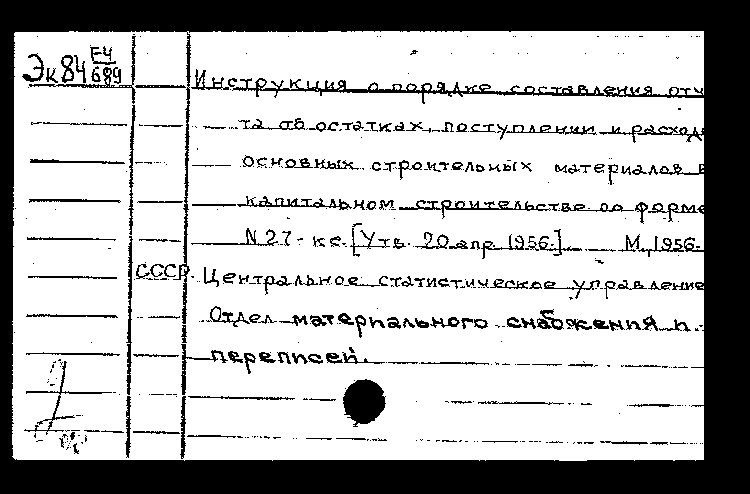 Эк 84 Е-4/689
Инструкция о порядке составления отч
та об остатках, поступлении и расходе
основных строительных материалов в
капитальном строительстве по форме
N 27-кс. [Утв. 20 апр. 1956.] М., 1956.
СССР. Центральное статистическое управление
Отдел материального снабжения и
переписей.